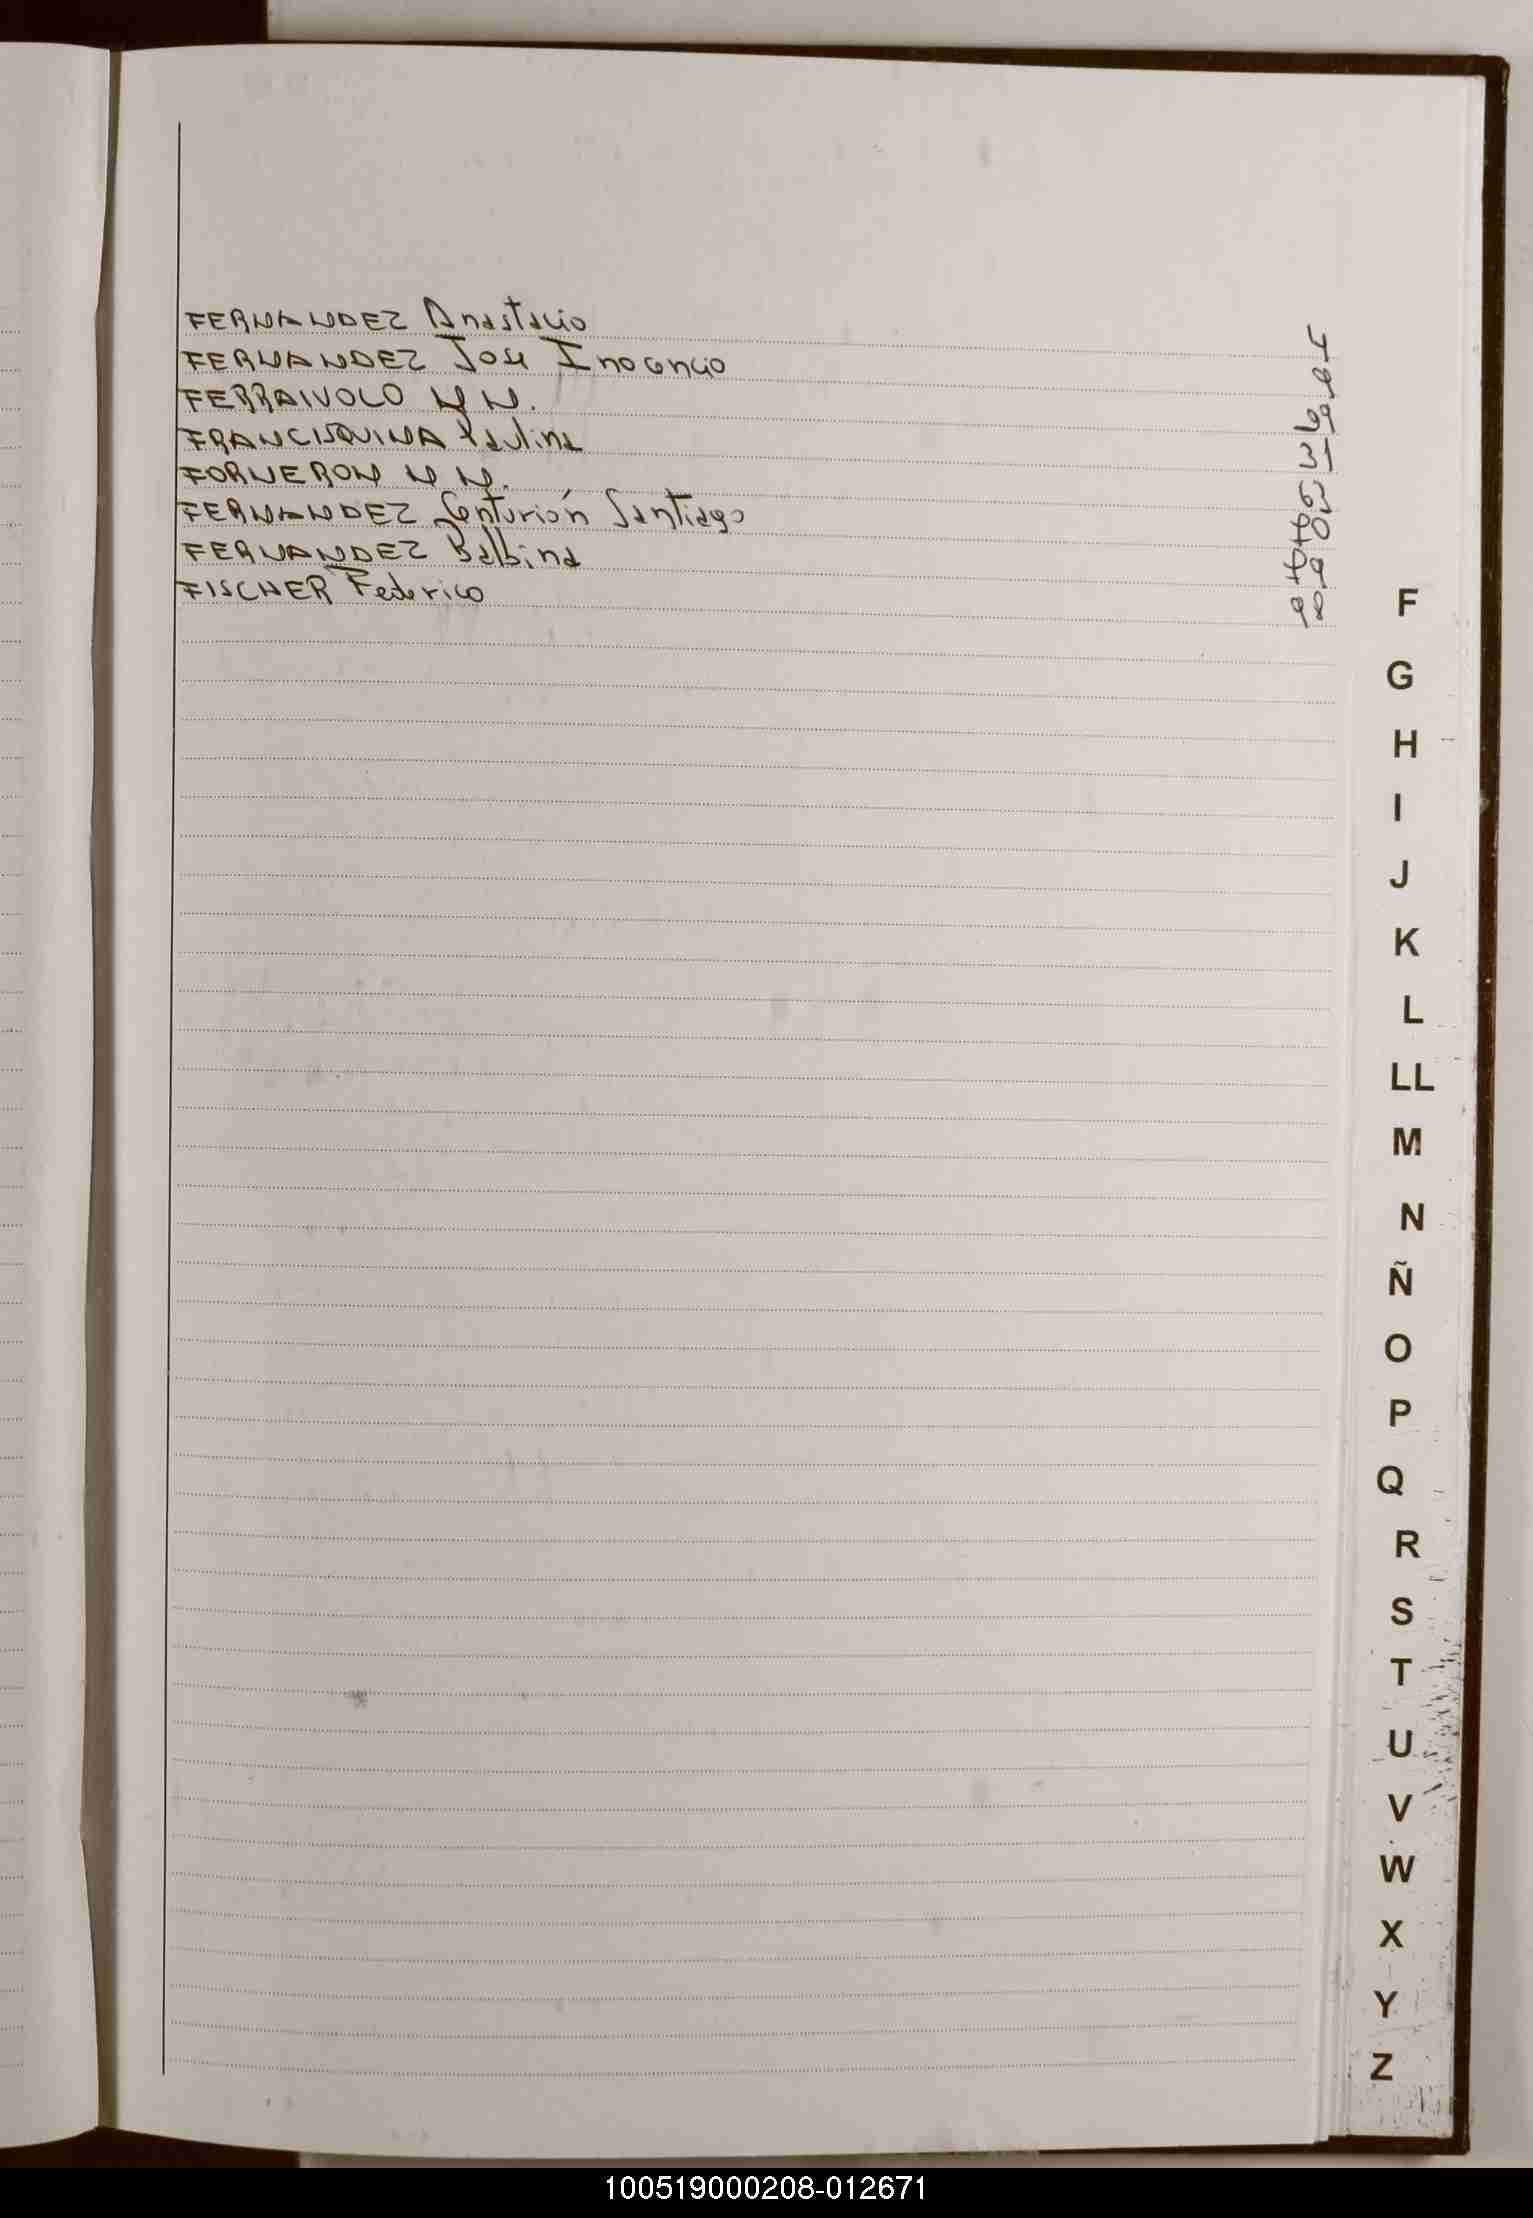 FERNANDEZ Anastacio
FERNANDEZ José Inocencio
FERRAIVOLO N N.
FRANCISQUINA Paulina
FORNERON N N.
FERNANDEZ Centurión Santiago
FERNANDEZ Balbina
FISCHER Federico
F
G
H
I
J
K
L
LL
M
N
Ñ
O
P
Q
R
S
T
U
V
W
X
Y
Z
100519000208-012671